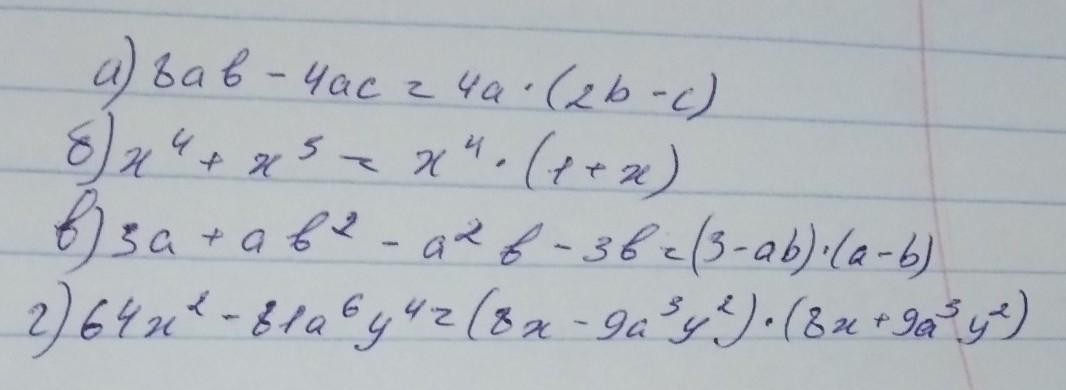 а) 8ab - 4ac = 4a · (2b - c)
б) x⁴ + x⁵ = x⁴ · (1 + x)
в) 3a + ab² - a²b - 3b = (3 - ab) · (a - b)
г) 64x² - 81a⁶y⁴ = (8x - 9a³y²) · (8x + 9a³y²)